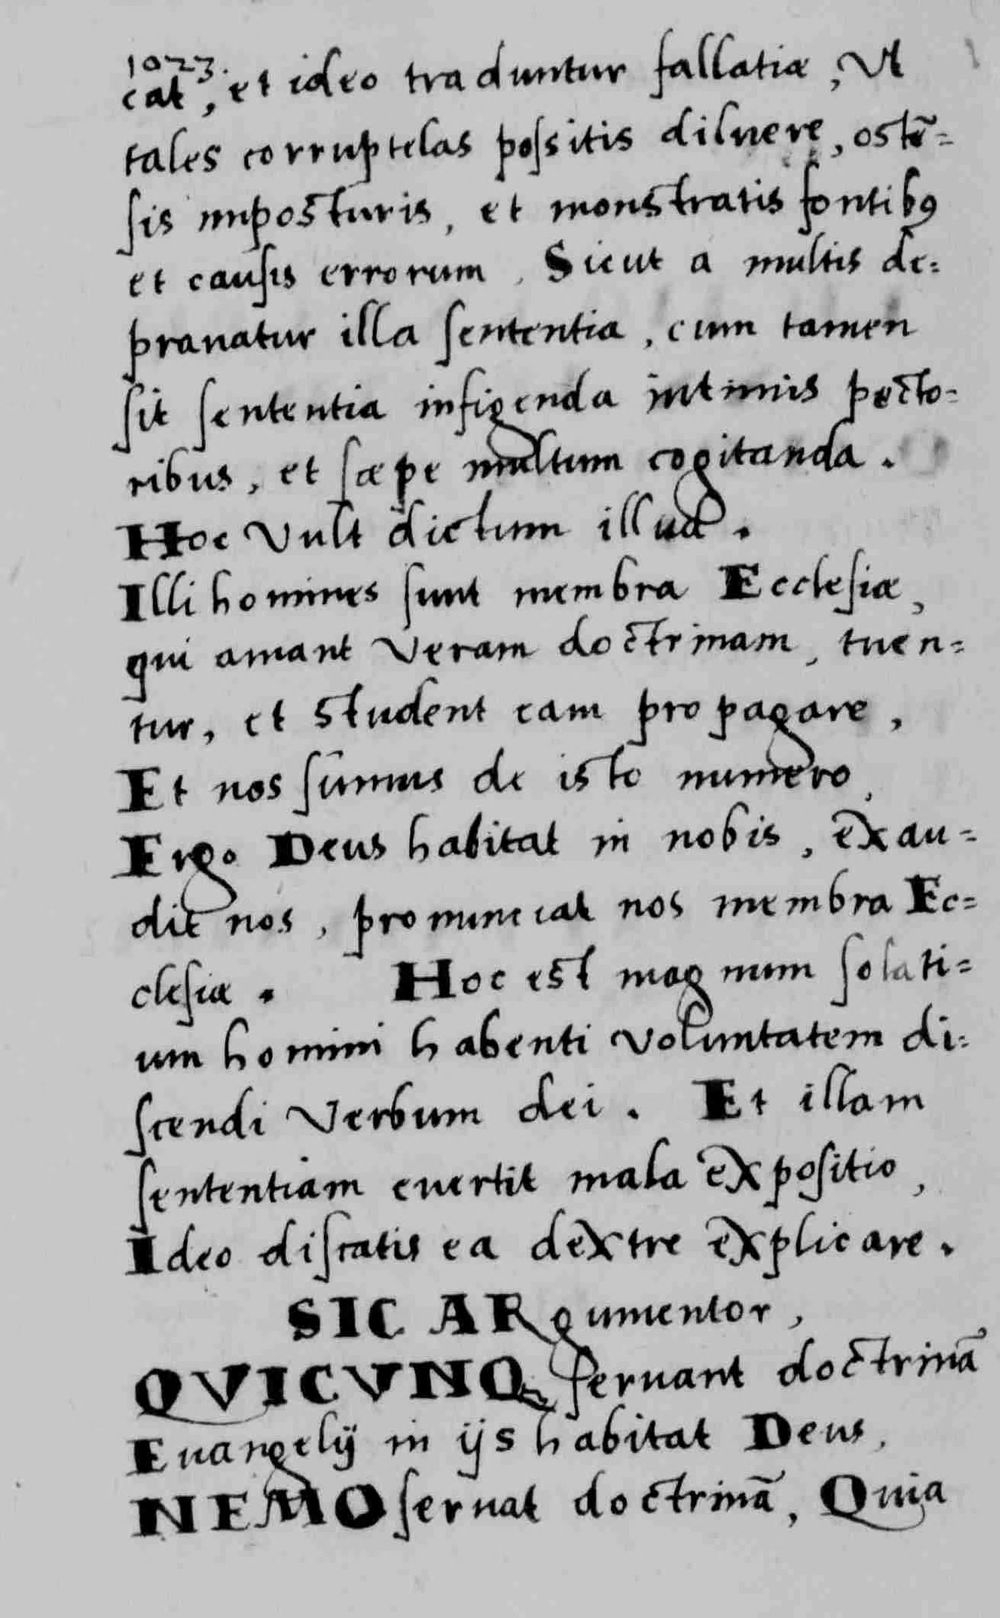 1023.
cat, et ideo traduntur fallatiæ, Vt
tales corruptelas possitis diluere, ostē=
sis imposturis, et monstratis fontibꝰ
et causis errorum. Sicut a multis de=
prauatur illa sententia, cum tamen
sit sententia infigenda intimis pecto=
ribus, et sæpe multum cogitanda.
Hoc Vult dictum illud.
Illi homines sunt membra Ecclesiæ,
qui amant Veram doctrinam, tuen=
tur, et student eam propagare,
Et nos sumus de isto numero,
Ergo Deus habitat in nobis, exau=
dit nos, pronunciat nos membra Ec=
clesiæ. Hoc est magnum solati=
um homini habenti Voluntatem di=
scendi Verbum dei. Et illam
sententiam euertit mala expositio,
Ideo discatis ea dextre explicare.
SIC ARgumentor,
QVICVNQꝫ seruant doctrinā
Euangelij in ijs habitat Deus,
NEMO seruat doctrinā, Quia